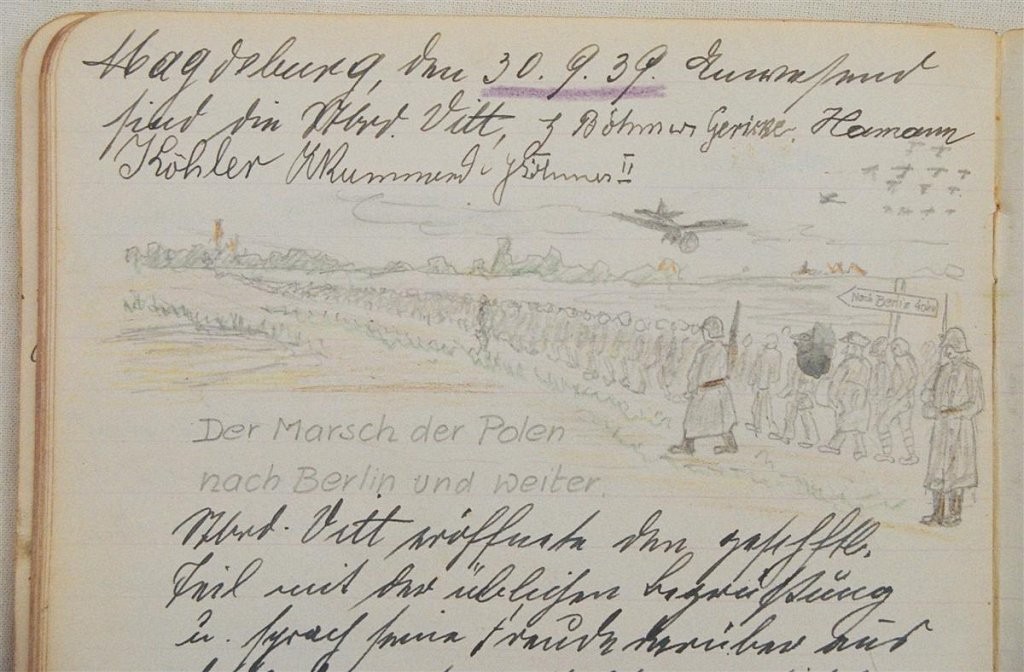 Magdeburg, den 30. 9. 39. Anwesend
sind die Kbrd. Vitt, Böhmers Gericke, Hamann
Köhler Krummrad Böhmer II
Nach Berlin
Der Marsch der Polen
nach Berlin und weiter.
Kbrd. Vitt eröffnete den geschftl.
Teil mit der üblichen Begrüßung
u. sprach seine Freude darüber aus